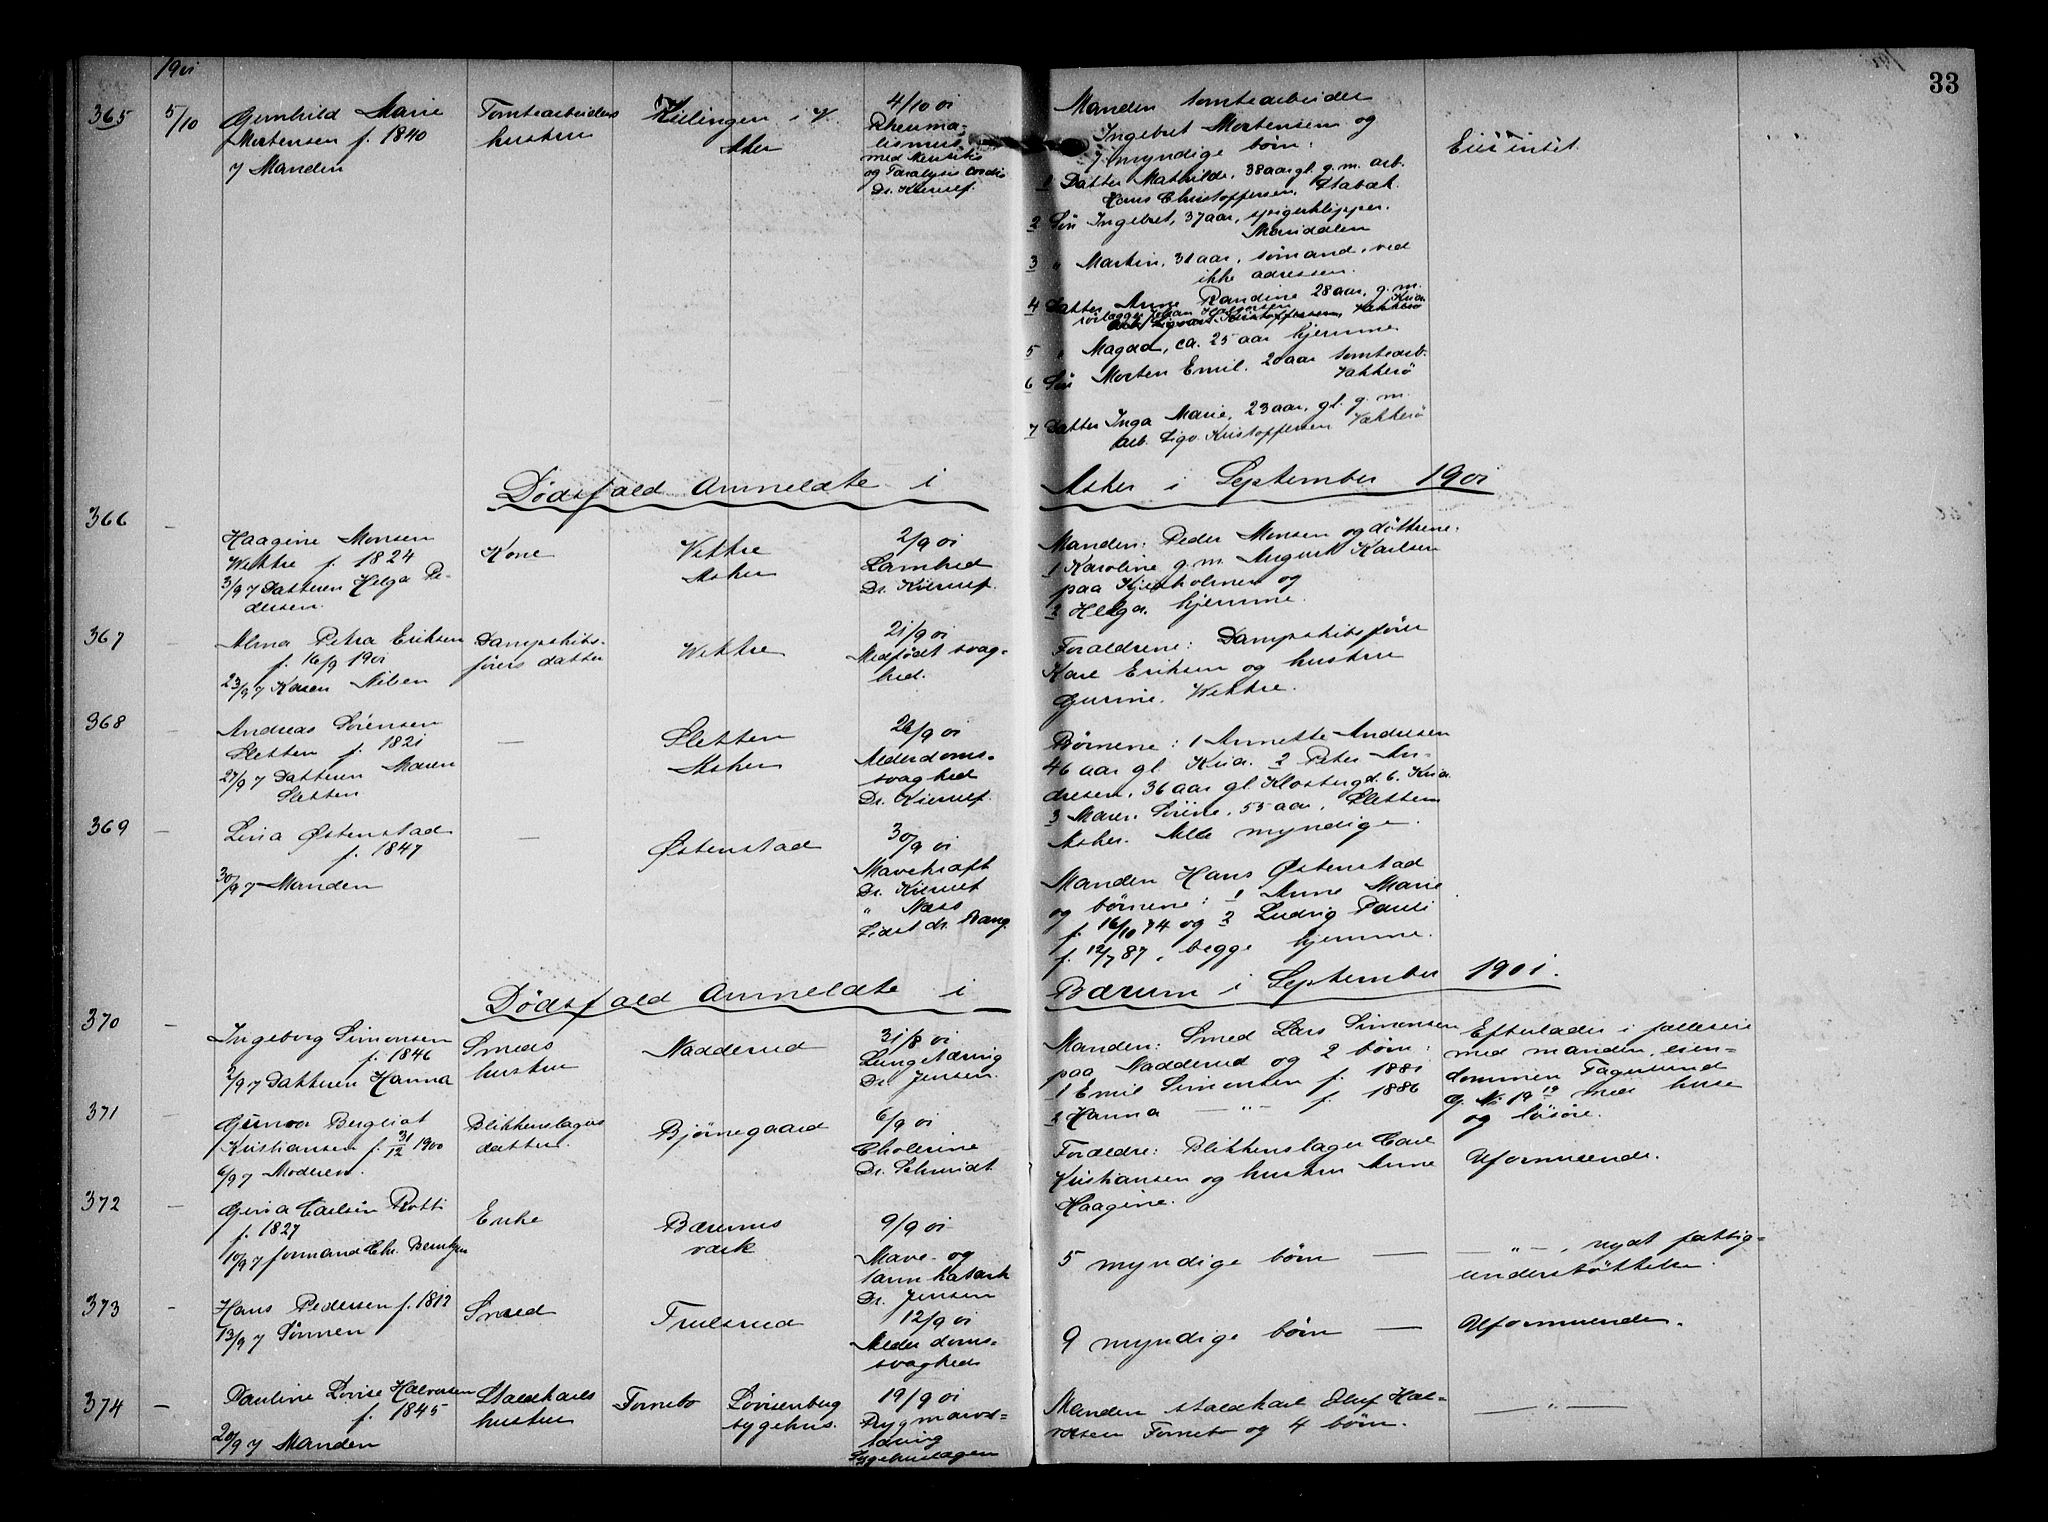 1901
33
365
5/10
Gunhild Marie
Mortensen f. 1840
7 Manden
Tomtearbeiders
hustru
Killingen i V.
Aker
4/10 01
Rheuma-
tismus
med
og Paralysis cordis
Dr. Kierulf
Manden tomtearbeider
Ingebret Mortensen og
7 myndige børn:
1 Datter Mathilde, 38 aar gl. g. m. arb.
Hans Christoffersen, Stabæk.
2 Søn Ingebret, 37 aar, spigerklipper.
Maridalen
3 " Martin, 31 aar, sømand, ved
ikke adressen.
4 Datter Anne Randine 28 aar, g. m.
Kria
5 " Magda, ca. 25 aar hjemme
6 Søn Morten Emil. 20 aar tomtearb.
Vækkerö
7 Datter Inga Marie, 23 aar, gl. g. m.
arb. Sigv. Kristoffersen Vækkerö
Eier intet.
Dødsfald anmeldte i Asker i September 1901
366
—
Haagine Monsen
Vettre f. 1824
3/9 7 Datteren Helga Pe-
dersen.
Kone
Vettre
Asker
2/9 01
Lamhed
Dr. Kierulf.
Manden: Peder Monsen og døttrene:
1 Karoline g. m. August Karlsen
paa Kjeholmen og
2 Helga. hjemme.
367
—
Alma Petra Eriksen
f. 16/9 1901
23/9 7 Karen Nilsen
Dampskibs-
førers datter
Vettre
21/9 01
Medfødt svag-
hed.
Forældrene: Dampskibsfører
Karl Eriksen og hustru
Gurine. Vettre.
368
—
Andreas Sørensen
Sletten f. 1821
27/9 7 Datteren Maren
Sletten
—
Sletten
Asker
26/9 01
Alderdoms-
svaghed
Dr. Kierulf.
Børnene: 1 Annette Andresen
46 aar gl. Kria. 2 Peter An-
dresen, 36 aar gl Klostergd. 6. Kria
3 Maren Sørine, 55 aar, Sletten
Asker. Alle myndige.
369
—
Lina Østenstad
f. 1847
30/9 7 Manden
—
Østenstad
30/9 01
Mavekræft
Dr. Kierulf
" Næss
Sidst dr. Bang.
Manden Hans Østenstad
og børnene: 1 Anne Marie
f. 16/10 74 og 2 Ludvig Pauli
f. 12/7 87, begge hjemme.
Dødsfald anmeldte i Bærum i September 1901.
370
—
Ingeborg Simonsen
f. 1846
2/9 7 Datteren Hanna
Smeds
hustru
Nadderud
31/8 01
Lungetæring
Dr. Jensen.
Manden: Smed Lars Simonsen
paa Nadderud og 2 børn:
1 Emil Simonsen f. 1881
2 Hanna — " — f. 1886
Efterlader i fælleseie
med manden, eien-
dommen Fagerlund
g. No 19 19 med huse
og løsøre.
371
—
Gunvor Bergliot
Kristiansen f. 31/12 1900
6/9 7 Moderen.
Blikkenslagers
datter.
Bjørnegaard
6/9 01
Cholerine
Dr. Schmidt
Forældre: Blikkenslager Carl
Kristiansen og hustru Anne
Haagine.
Uformuende.
372
—
Gina Carlsen Rotti
f. 1827
10/9 7 formand Chr. Berntzen
Enke
Bærums
værk
9/9 01
Mave- og
tarmkatarh
Dr. Jensen
5 myndige børn —
— " — , nydt fattig-
understøttelse.
373
—
Hans Pedersen f. 1812
13/9 7 Sønnen
Smed
Trulsrud
12/9 01
Alderdoms-
svaghed
9 myndige børn —
Uformuende.
374
—
Pauline Lovise Halvorsen
f. 1845
20/9 7 Manden
Staldkarls
hustru
Fornebo
Lovisenberg
sygehus.
19/9 01
Rygmarvs-
tæring
Sygehuslægen
Manden staldkarl Oluf Hal-
vorsen Fornebo og 4 børn.
— " —